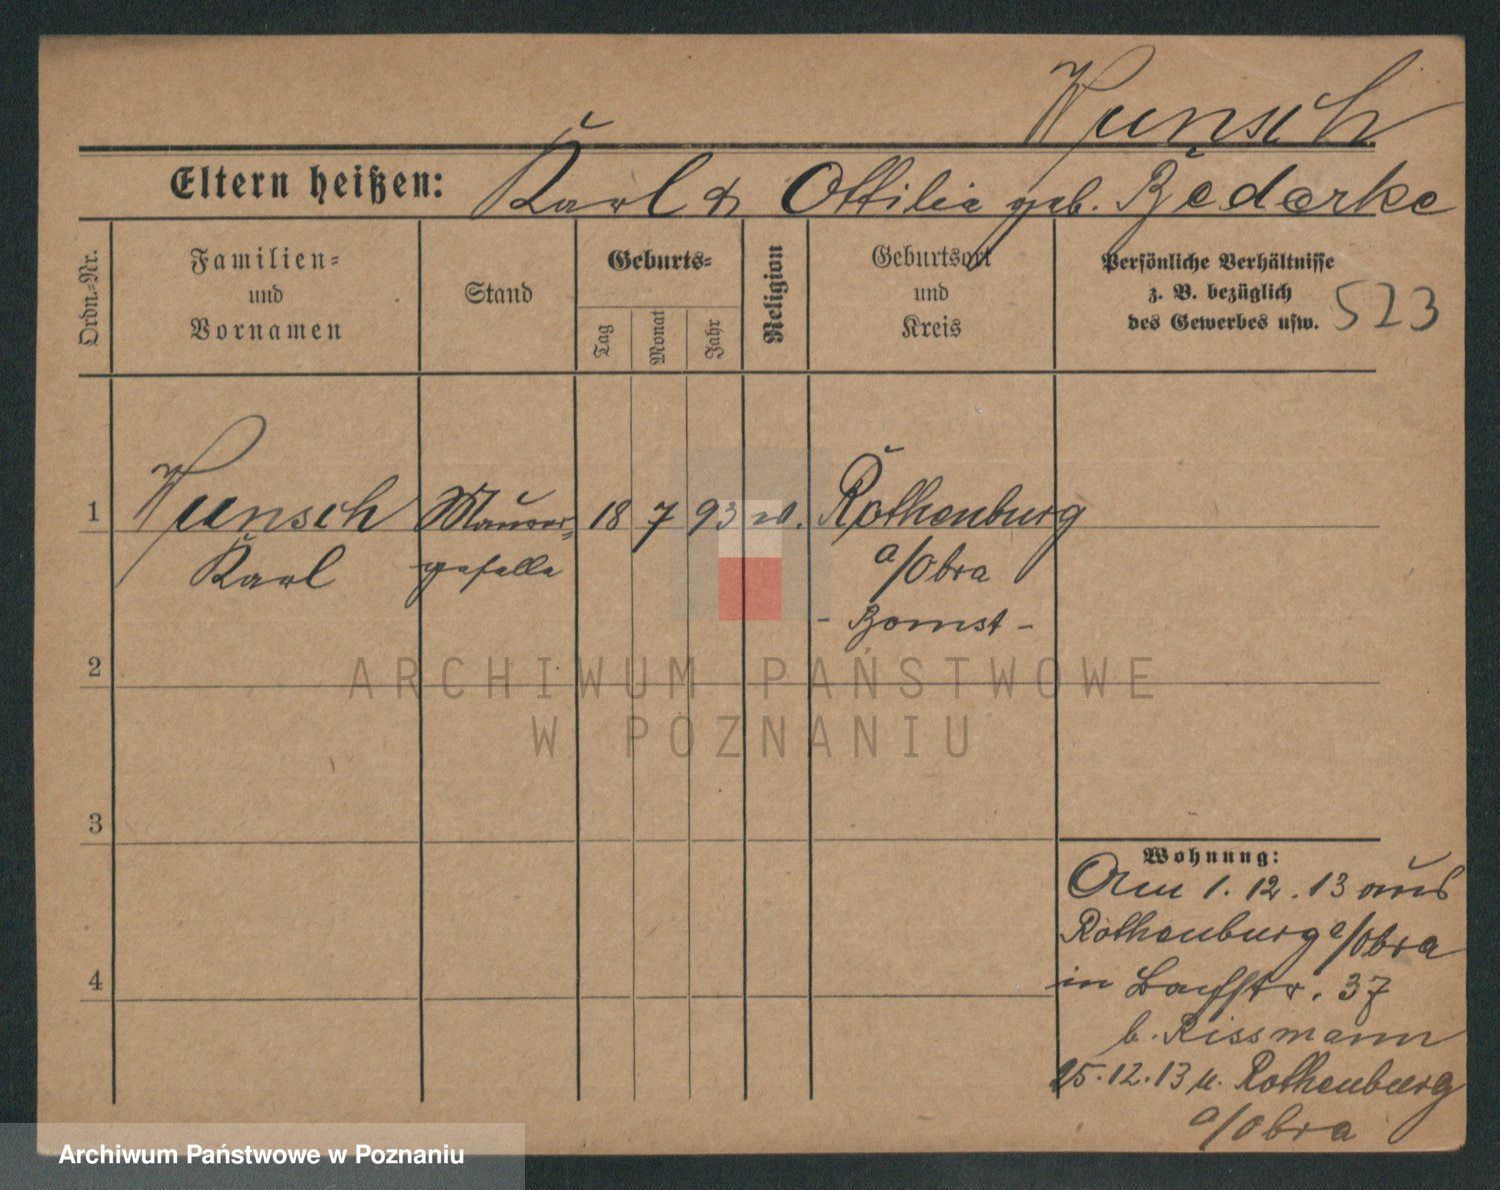 Wunsch
Eltern heißen: Karl & Ottilie geb. Bederke
Ordn.-Nr.
Familien-
und
Vornamen
Stand
Geburts-
Tag
Monat
Jahr
Religion
Geburtsort
und
Kreis
Persönliche Verhältnisse
z. B. bezüglich
des Gewerbes usw.
523
1 Wunsch Maurer- 18 7 93 ev. Rothenburg
Karl geselle a/Obra
- Bomst -
2
ARCHIWUM PAŃSTWOWE
W POZNANIU
3
Wohnung:
Am 1.12.13 aus
Rothenburg a/Obra
in 37
b. Rissmann
15.12.13 n. Rothenburg
a/Obra
4
Archiwum Państwowe w Poznaniu